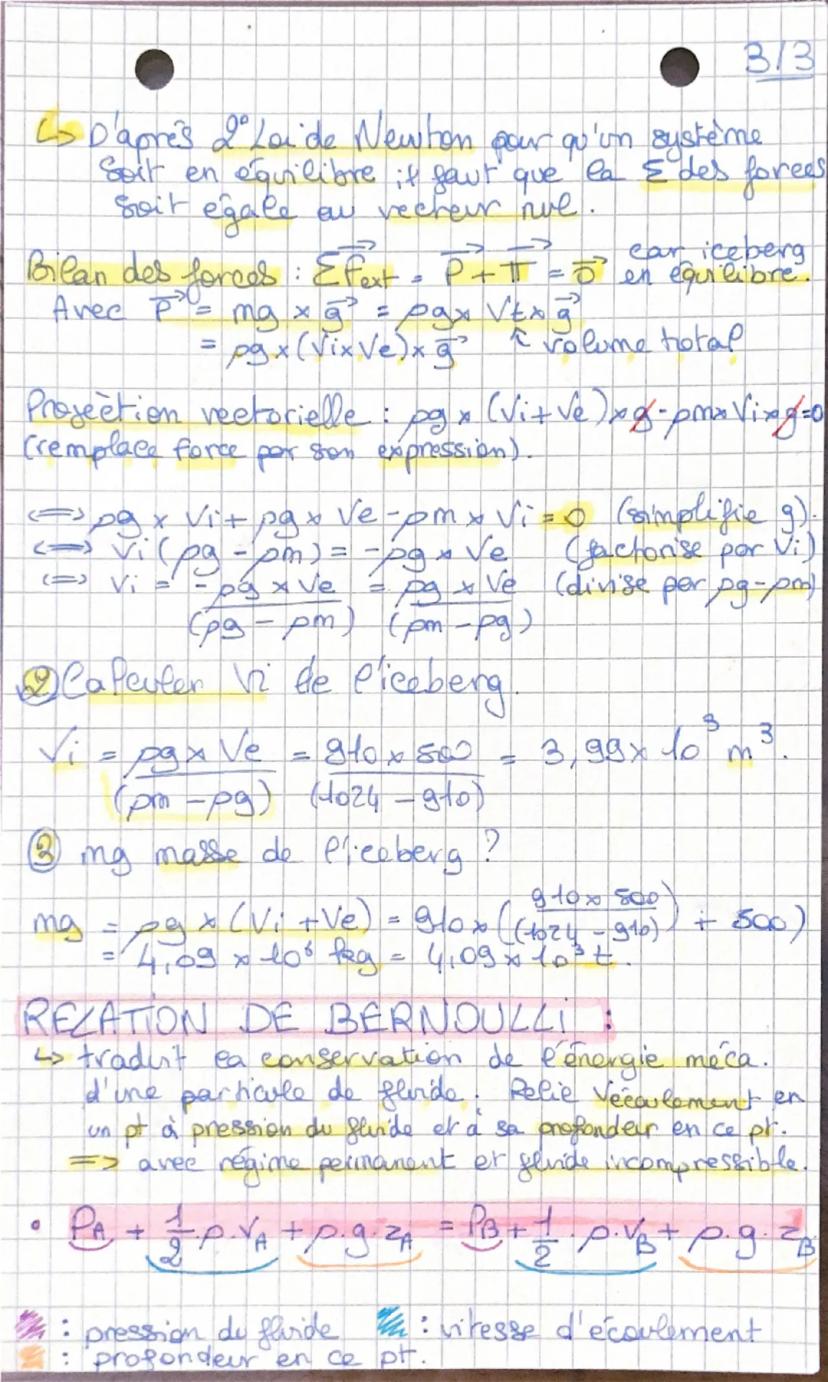 3/3
↳ D'après 2° Loi de Newton pour qu'un système
soit en équilibre il faut que la Σ des forces
soit égale au vecteur nul.
Bilan des forces : ΣFext = P + π = 0 car iceberg
en équilibre.
Avec P = mg × g = ρg × Vt × g
= ρg × (Vi × Ve) × g ↑ volume total
Projection vectorielle : ρg × (Vi + Ve) × g - ρm × Vi × g = 0
(remplace force par son expression).
<=> ρg × Vi + ρg × Ve - ρm × Vi = 0 (simplifie g).
<=> Vi (ρg - ρm) = -ρg × Ve (factorise par Vi)
<=> Vi = -ρg × Ve / (ρg - ρm) = ρg × Ve / (ρm - ρg) (divise par ρg - ρm)
② Calculer Vi de l'iceberg.
Vi = ρg × Ve / (ρm - ρg) = 910 × 500 / (1024 - 910) = 3,99 × 10³ m³.
③ mg masse de l'iceberg ?
mg = ρg × (Vi + Ve) = 910 × ((910 × 500 / (1024 - 910)) + 500)
= 4,09 × 10⁶ kg = 4,09 × 10³ t.
RELATION DE BERNOULLI :
↳ traduit la conservation de l'énergie méca.
d'une particule de fluide. Relie l'écoulement en
un pt à pression du fluide et à sa profondeur en ce pt.
=> avec régime permanent et fluide incompressible.
• PA + 1/2 · ρ · vA + ρ · g · zA = PB + 1/2 · ρ · vB + ρ · g · zB
: pression du fluide : vitesse d'écoulement
: profondeur en ce pt.